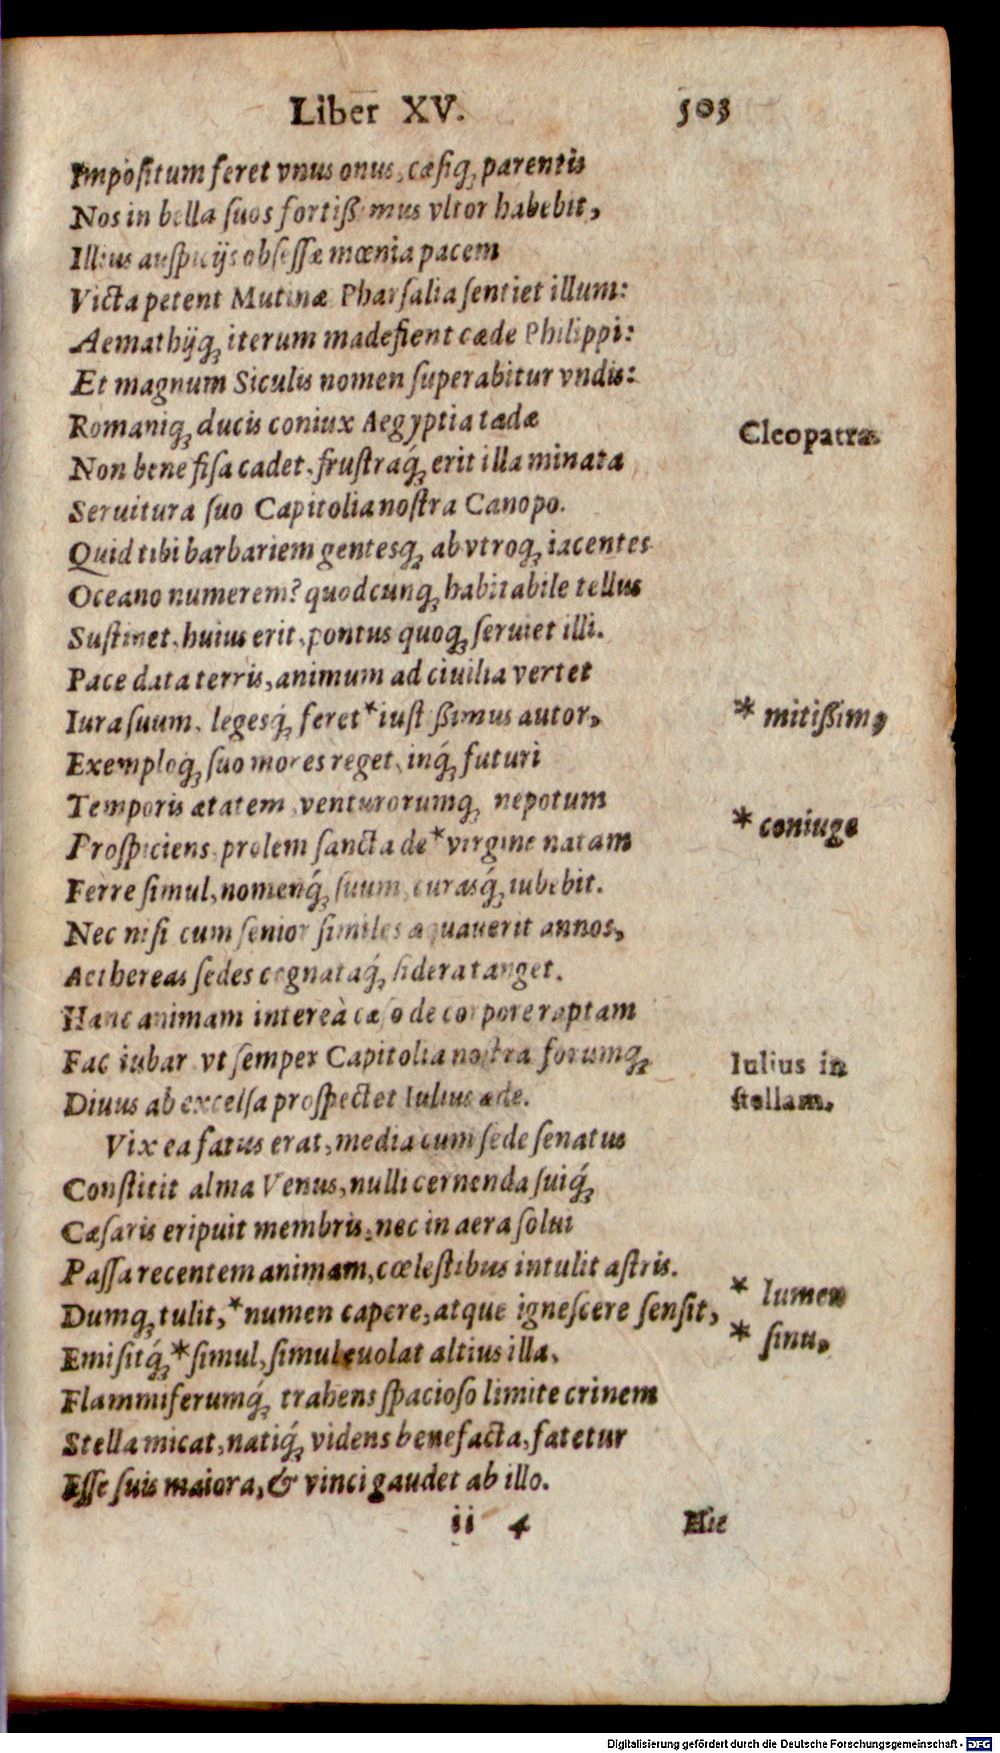 Liber XV. 503
Impositum feret vnus onus, cæsiq́; parentis
Nos in bella suos fortissimus vltor habebit,
Illius auspicijs obsessæ mœnia pacem
Victa petent Mutinæ Pharsalia sentiet illum:
Aemathijq; iterum madefient cæde Philippi:
Et magnum Siculis nomen superabitur vndis:
Romaniq; ducis coniux Aegyptia tædæ
Cleopatra.
Non bene fisa cadet, frustraq́; erit illa minata
Seruitura suo Capitolia nostra Canopo.
Quid tibi barbariem gentesq; ab vtroq; iacentes
Oceano numerem? quodcunq; habitabile tellus
Sustinet, huius erit, pontus quoq; seruiet illi.
Pace data terris, animum ad ciuilia vertet
Iura suum, legesq́; feret *iustissimus autor,
* mitissimꝰ
Exemploq; suo mores reget, inq́; futuri
Temporis ætatem, venturorumq; nepotum
* coniuge
Prospiciens, prolem sancta de *virgine natam
Ferre simul, nomenq́; suum, curasq́; iubebit.
Nec nisi cum senior similes æquauerit annos,
Aethereas sedes cognataq́; sidera tanget.
Hanc animam intereà cæso de corpore raptam
Fac iubar vt semper Capitolia nostra forumq;
Iulius in
Diuus ab excelsa prospectet Iulius æde.
stellam.
Vix ea fatus erat, media cum sede senatus
Constitit alma Venus, nulli cernenda suiq́;
Cæsaris eripuit membris, nec in aera solui
Passa recentem animam, cœlestibus intulit astris.
Dumq; tulit, *numen capere, atque ignescere sensit,
* lumen
Emisitq́; *simul, simul euolat altius illa,
* sinu,
Flammiferumq́; trahens spacioso limite crinem
Stella micat, natiq́; videns benefacta, fatetur
Esse suis maiora, & vinci gaudet ab illo.
ii 4 Hic
Digitalisierung gefördert durch die Deutsche Forschungsgemeinschaft - DFG